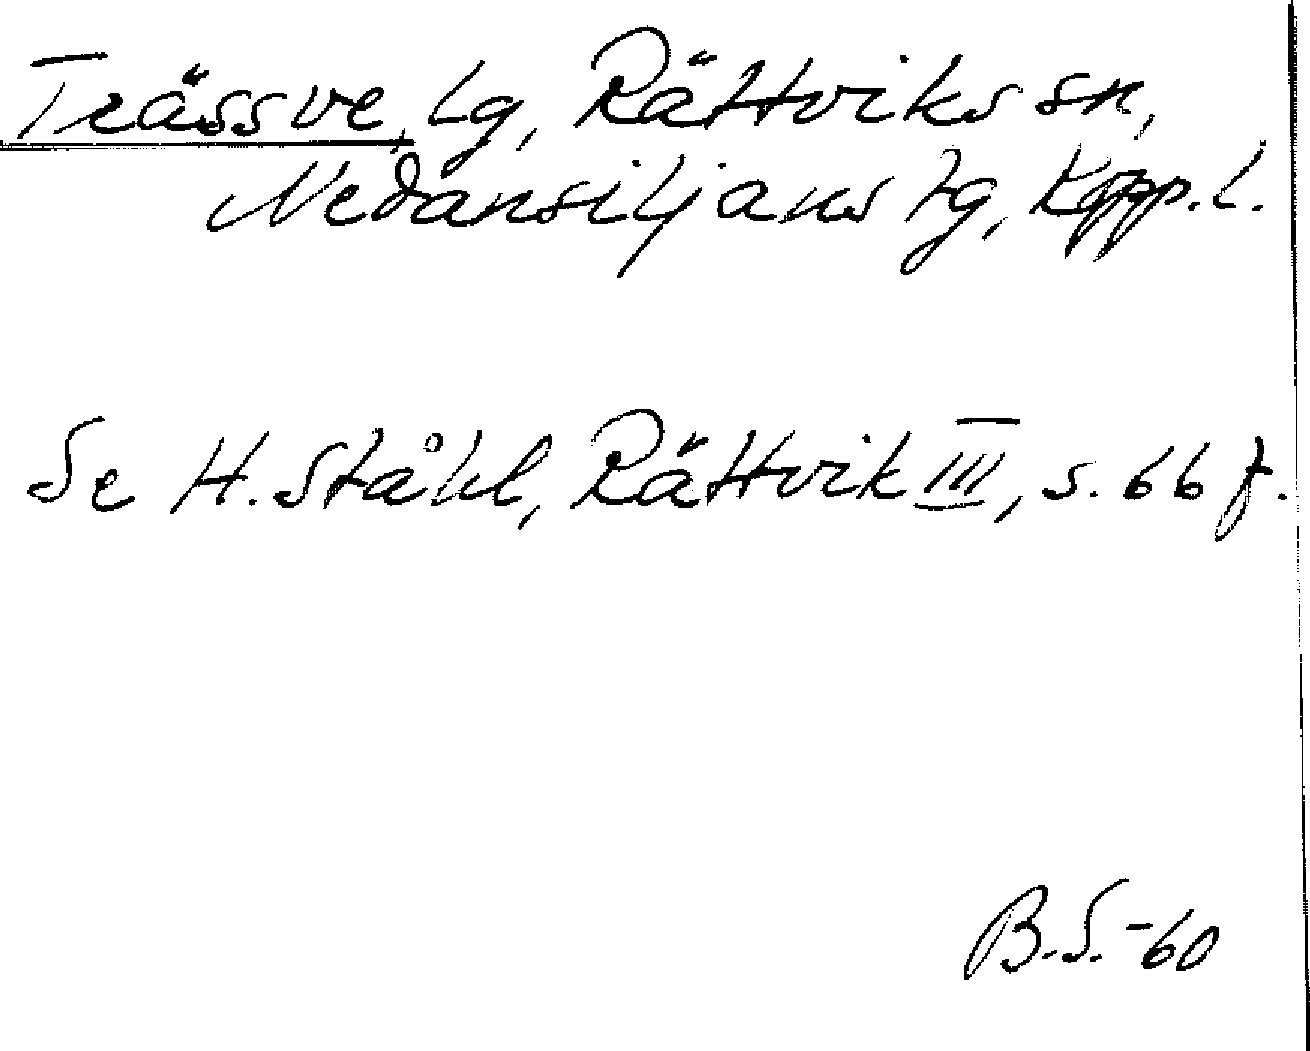 Trässve, lg, Rättviks sn,
Nedansiljans tg, Kopp. l.
Se H. Ståhl, Rättvik III, s. 66 f.
B.S. -60